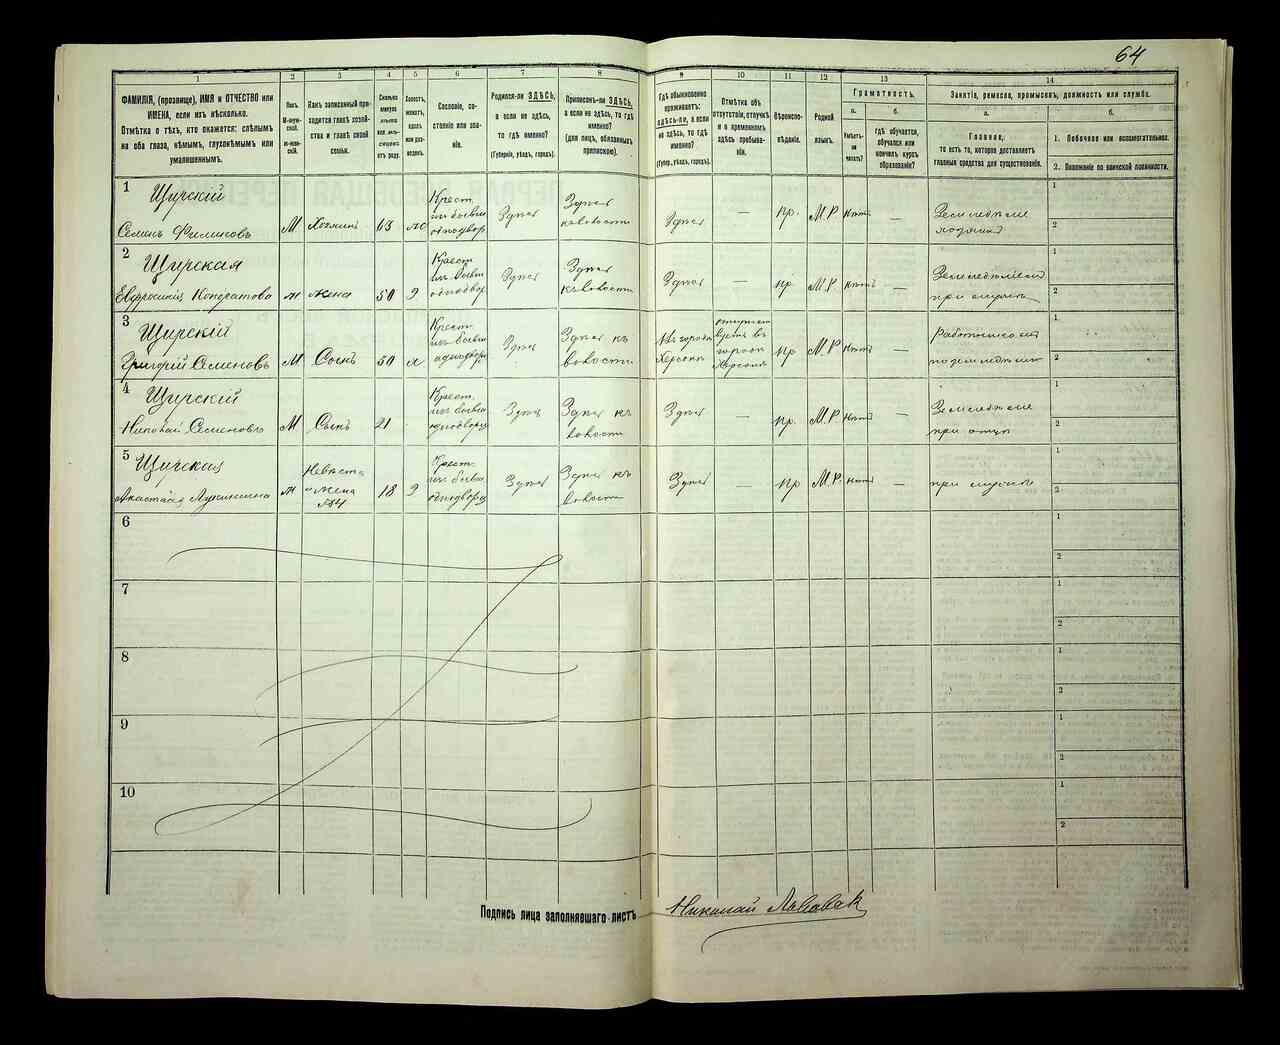 64
1
2
3
4
5
6
7
8
9
10
11
12
13
14
ФАМИЛІЯ, (прозвище), ИМЯ и ОТЧЕСТВО или
ИМЕНА, если ихъ нѣсколько.
Отмѣтка о тѣхъ, кто окажется: слѣпымъ
на оба глаза, нѣмымъ, глухонѣмымъ или
умалишеннымъ.
Полъ.
М-муж-
ской.
Ж-жен-
скій.
Какъ записанный при-
ходится главѣ хозяй-
ства и главѣ своей
семьи.
Сколько
минуло
лѣтъ
или мѣ-
сяцевъ
отъ роду.
Холостъ,
женатъ,
вдовъ
или раз-
веденъ.
Сословіе, со-
стояніе или зва-
ніе.
Родился-ли ЗДѢСЬ,
а если не здѣсь,
то гдѣ именно?
(Губернія, уѣздъ, городъ).
Приписанъ-ли ЗДѢСЬ,
а если не здѣсь, то гдѣ
именно?
(для лицъ, обязанныхъ
припискою).
Гдѣ обыкновенно
проживаетъ:
здѣсь-ли, а если
не здѣсь, то гдѣ
именно?
(Губер., уѣздъ, городъ).
Отмѣтка объ
отсутствіи, отлучкѣ
и о временномъ
здѣсь пребыва-
ніи.
Вѣроиспо-
вѣданіе.
Родной
языкъ.
Грамотность.
а.
Умѣетъ-
ли
читать?
б.
гдѣ обучается,
обучался или
кончилъ курсъ
образованія?
Занятіе, ремесло, промыселъ, должность или служба.
а.
Главное,
то есть то, которое доставляетъ
главныя средства для существованія.
б.
1. Побочное или вспомогательное.
2. Положеніе по воинской повинности.
1
Щирскій
Семенъ Филиповъ
М Хозяинъ
Крест.
изъ бывш
однодвор
Здѣсь
Здѣсь
Здѣсь
—
пр.
М.Р.
нѣтъ
—
Земледѣлие
хозяинъ
1
2
2
Щирская
Евфросинія Кондратова
ж жена 50
Крест
изъ бывш
однодвор
Здѣсь
Здѣсь
къ волости
Здѣсь
—
пр
М.Р.
нѣтъ
—
при мужѣ
1
2
3
Щирскій
Григорій Семеновъ
М Сынъ
Крест.
изъ бывш
однодвор
Здѣсь
Здѣсь къ
волости
Въ городѣ
Херсонѣ
въ
городѣ
Херсонѣ
пр
М.Р.
нѣтъ
—
1
2
4
Щирскій
Николай Семеновъ
М Сынъ 21
Крест.
изъ бывш
однодворц
Здѣсь
Здѣсь къ
волости
Здѣсь
—
пр.
М.Р.
нѣтъ
—
Земледѣлие
при отцѣ
1
2
5
Щирская
Анастасія
ж
Невѣстка
жена
18
Крест.
изъ бывш
однодворц
Здѣсь
Здѣсь къ
волости
Здѣсь
—
пр
М.Р.
нѣтъ
—
при мужѣ
1
2
6
1
2
7
1
2
8
1
2
9
1
2
10
1
2
Подпись лица заполнявшаго листъ
Николай